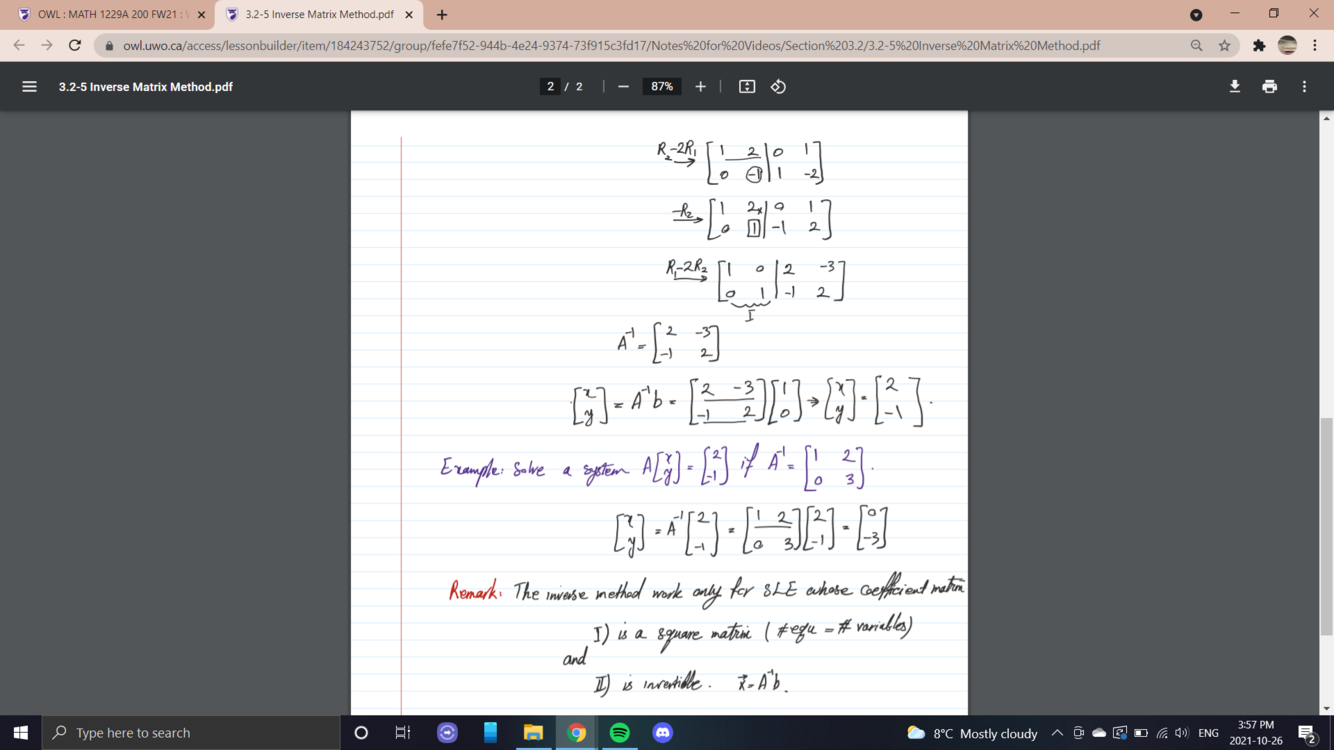 OWL : MATH 1229A 200 FW21 : V
3.2-5 Inverse Matrix Method.pdf
owl.uwo.ca/access/lessonbuilder/item/184243752/group/fefe7f52-944b-4e24-9374-73f915c3fd17/Notes%20for%20Videos/Section%203.2/3.2-5%20Inverse%20Matrix%20Method.pdf
3.2-5 Inverse Matrix Method.pdf
2 / 2
87%
R₂-2R₁ → [1 2 | 0 1]
[0 -1 | 1 -2]
-R₂ → [1 2 | 0 1]
[0 1 | -1 2]
R₁-2R₂ → [1 0 | 2 -3]
[0 1 | -1 2]
I
A⁻¹ = [2 -3]
[-1 2]
[x] = A⁻¹b = [2 -3] [1] → [x] = [2]
[y] [-1 2] [0] [y] [-1] .
Example: Solve a system A [x] = [2] if A⁻¹ = [1 2]
[y] [-1] [0 3] .
[x] = A⁻¹ [2] = [1 2] [2] = [0]
[y] [-1] [0 3] [-1] [-3]
Remark: The inverse method work only for SLE whose coefficient matrix
I) is a square matrix (#equ = # variables)
and
II) is invertible. x⃗ = A⁻¹b.
Type here to search
8°C Mostly cloudy
ENG
3:57 PM
2021-10-26
2